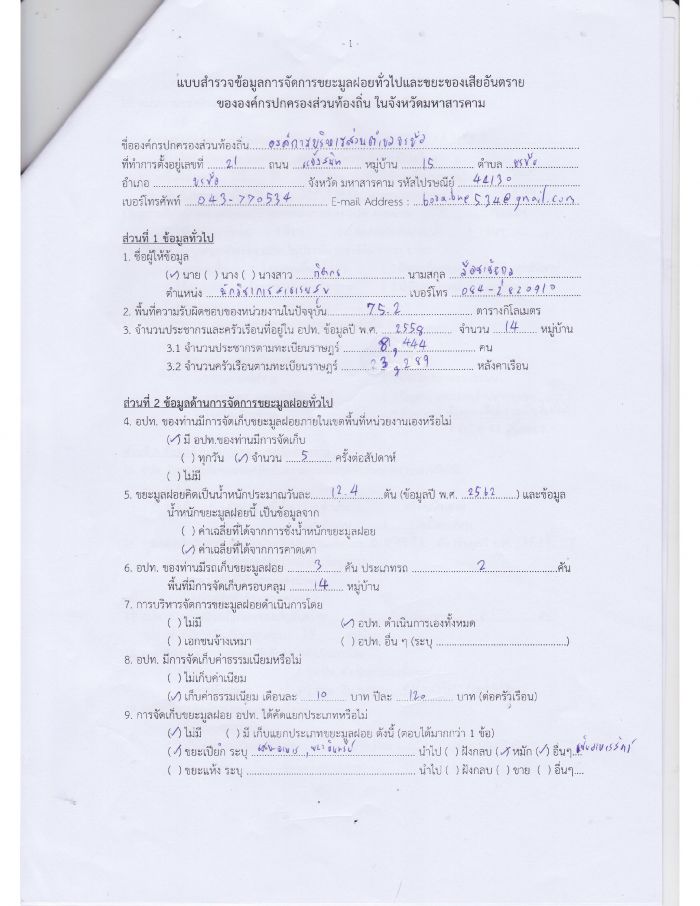 - 1 -
แบบสำรวจข้อมูลการจัดการขยะมูลฝอยทั่วไปและขยะของเสียอันตราย
ขององค์กรปกครองส่วนท้องถิ่น ในจังหวัดมหาสารคาม
ชื่อองค์กรปกครองส่วนท้องถิ่น.....องค์การบริหารส่วนตำบลบรบือ
ที่ทำการตั้งอยู่เลขที่ ....21.... ถนน ...แจ้งสนิท... หมู่บ้าน ....15.... ตำบล ..บรบือ..
อำเภอ ....บรบือ.... จังหวัด มหาสารคาม รหัสไปรษณีย์ ...44130...
เบอร์โทรศัพท์ ...043-770534... E-mail Address : ..borabue534@gmail.com
ส่วนที่ 1 ข้อมูลทั่วไป
1. ชื่อผู้ให้ข้อมูล
(✓) นาย ( ) นาง ( ) นางสาว ........ นามสกุล ........
ตำแหน่ง ....นักวิชาการสาธารณสุข.... เบอร์โทร ..084-2820910..
2. พื้นที่ความรับผิดชอบของหน่วยงานในปัจจุบัน......75.2...... ตารางกิโลเมตร
3. จำนวนประชากรและครัวเรือนที่อยู่ใน อปท. ข้อมูลปี พ.ศ. ...2558... จำนวน ...14... หมู่บ้าน
3.1 จำนวนประชากรตามทะเบียนราษฎร์ ......8,444...... คน
3.2 จำนวนครัวเรือนตามทะเบียนราษฎร์ ......,289...... หลังคาเรือน
ส่วนที่ 2 ข้อมูลด้านการจัดการขยะมูลฝอยทั่วไป
4. อปท. ของท่านมีการจัดเก็บขยะมูลฝอยภายในเขตพื้นที่หน่วยงานเองหรือไม่
(✓) มี อปท.ของท่านมีการจัดเก็บ
( ) ทุกวัน (✓) จำนวน ....5.... ครั้งต่อสัปดาห์
( ) ไม่มี
5. ขยะมูลฝอยคิดเป็นน้ำหนักประมาณวันละ.....12.4.....ตัน (ข้อมูลปี พ.ศ. ..2562..) และข้อมูล
น้ำหนักขยะมูลฝอยนี้ เป็นข้อมูลจาก
( ) ค่าเฉลี่ยที่ได้จากการชั่งน้ำหนักขยะมูลฝอย
(✓) ค่าเฉลี่ยที่ได้จากการคาดเดา
6. อปท. ของท่านมีรถเก็บขยะมูลฝอย ....3.... คัน ประเภทรถ ........2........คัน
พื้นที่มีการจัดเก็บครอบคลุม ....14.... หมู่บ้าน
7. การบริหารจัดการขยะมูลฝอยดำเนินการโดย
( ) ไม่มี (✓) อปท. ดำเนินการเองทั้งหมด
( ) เอกชนจ้างเหมา ( ) อปท. อื่น ๆ (ระบุ ........................)
8. อปท. มีการจัดเก็บค่าธรรมเนียมหรือไม่
( ) ไม่เก็บค่าเนียม
(✓) เก็บค่าธรรมเนียม เดือนละ ....10.... บาท ปีละ ...120... บาท (ต่อครัวเรือน)
9. การจัดเก็บขยะมูลฝอย อปท. ได้คัดแยกประเภทหรือไม่
(✓) ไม่มี ( ) มี เก็บแยกประเภทขยะมูลฝอย ดังนี้ (ตอบได้มากกว่า 1 ข้อ)
(✓) ขยะเปียก ระบุ ..เศษอาหาร, ........ นำไป ( ) ฝังกลบ (✓) หมัก (✓) อื่นๆ...
( ) ขยะแห้ง ระบุ ........................ นำไป ( ) ฝังกลบ ( ) ขาย ( ) อื่นๆ....